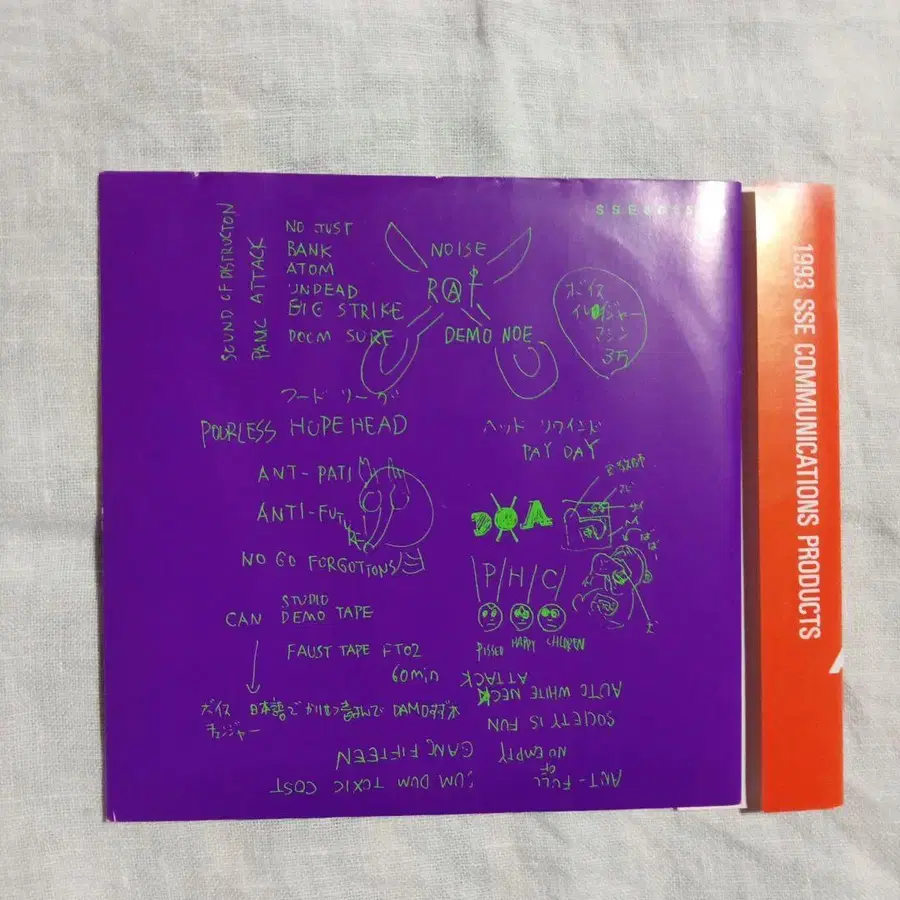 SOUND OF DISTRUCTON
PANIC ATTACK
NO JUST
BANK
ATOM
UNDEAD
BIG STRIKE
DOOM SURF
NOISE
RAT
DEMO NOE
ボイス
イレイジャー
マシン
3万
フード リーグ
POURLESS HOPEHEAD
ヘッド リワインド
PAY DAY
ANT-PATI
ANTI-FUTURE
DOA
NO GO FORGOTTONS
P/H/C/
PISSED HAPPY CHILDREN
STUDIO
CAN DEMO TAPE
FAUST TAPE FT02
60min
ATTACK
AUTO WHITE NECK
ボイス
チェンジャー
日本語で
SOCIETY IS FUN
GANG FIFTEEN
NO EMPTY
OF
ANT-FULL
DUM DUM TOXIC COST
1993 SSE COMMUNICATIONS PRODUCTS